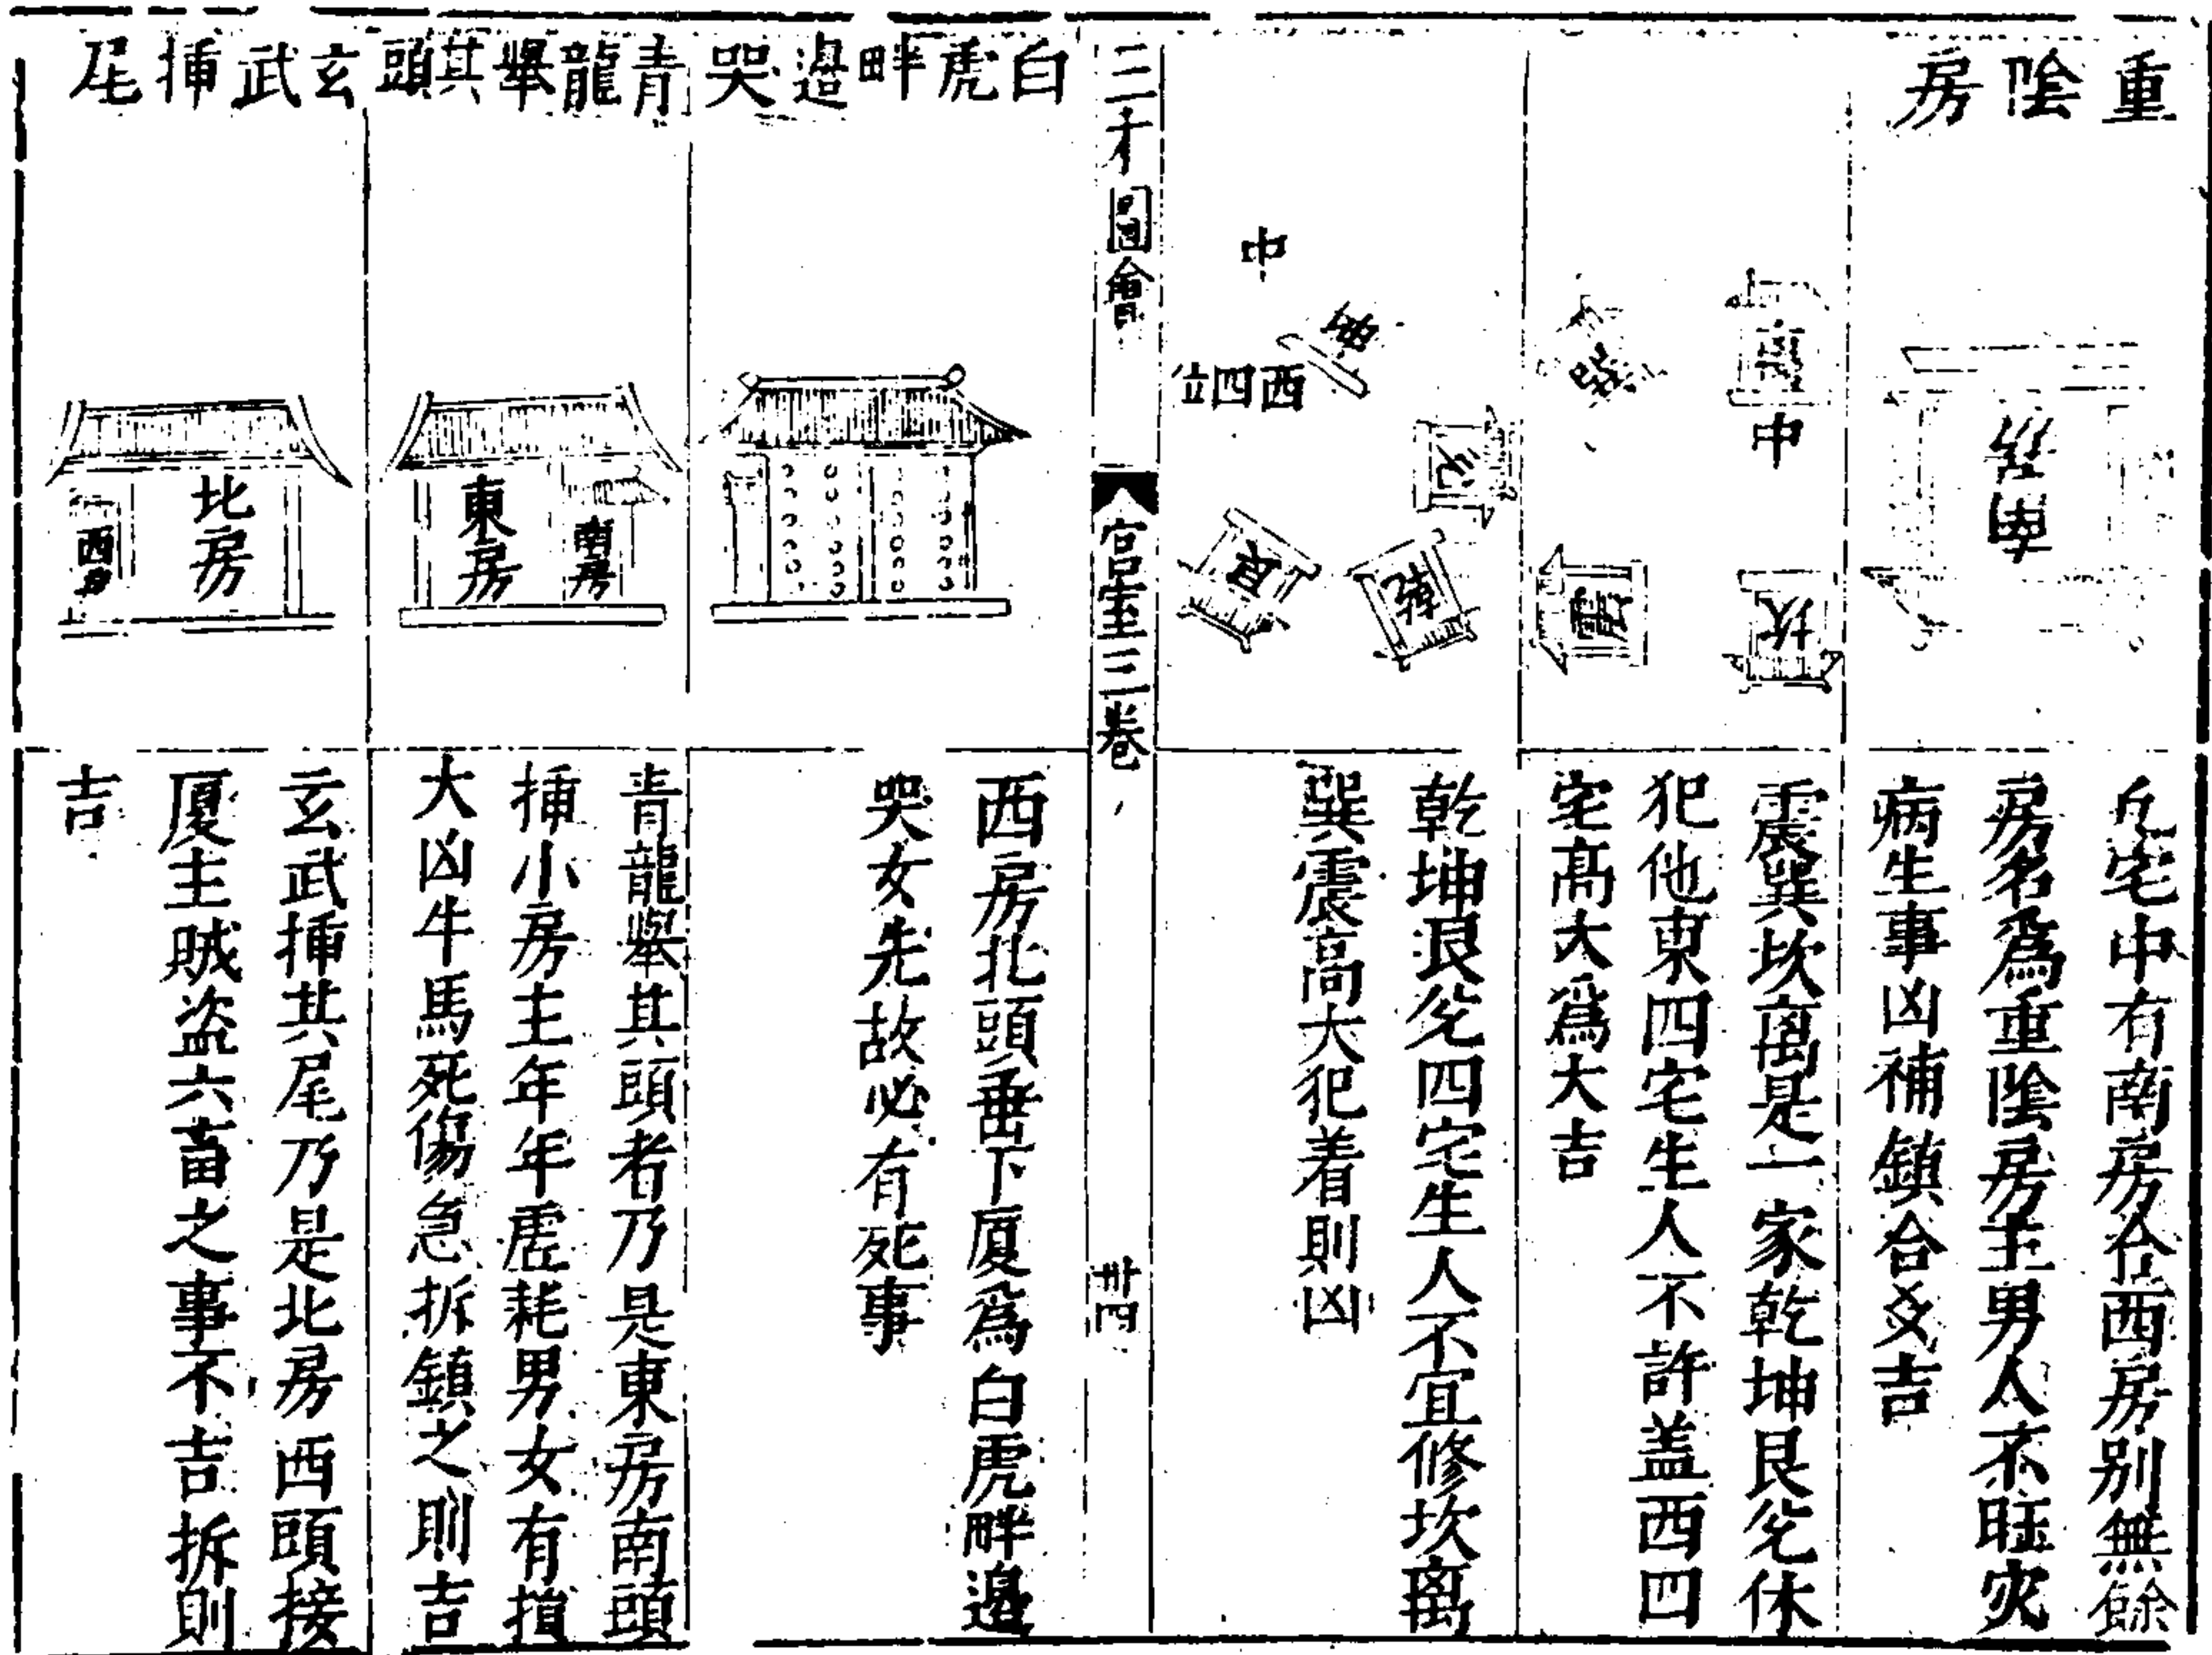 重陰房
中
坎
震
凡宅中有南房合西房别無餘
房名爲重陰房主男人不旺灾
病生事凶補鎮合爻吉
震巽坎离是一家乾坤艮兊休
犯他東四宅生人不許盖西四
宅高大爲大吉
中
西四位
兊
乾坤艮兊四宅生人不宜修坎离
巽震高大犯着則凶
三才圖會
宫室三卷
卅四
白虎畔邉哭
西房北頭垂下厦爲白虎畔邉
哭女先故必有死事
青龍舉其頭
東房
南房
青龍舉其頭者乃是東房南頭
挿小房主年年虚耗男女有損
大凶牛馬死傷急拆鎮之則吉
玄武挿尾
北房
西房
玄武挿其尾乃是北房西頭接
厦主賊盗六畜之事不吉拆則
吉